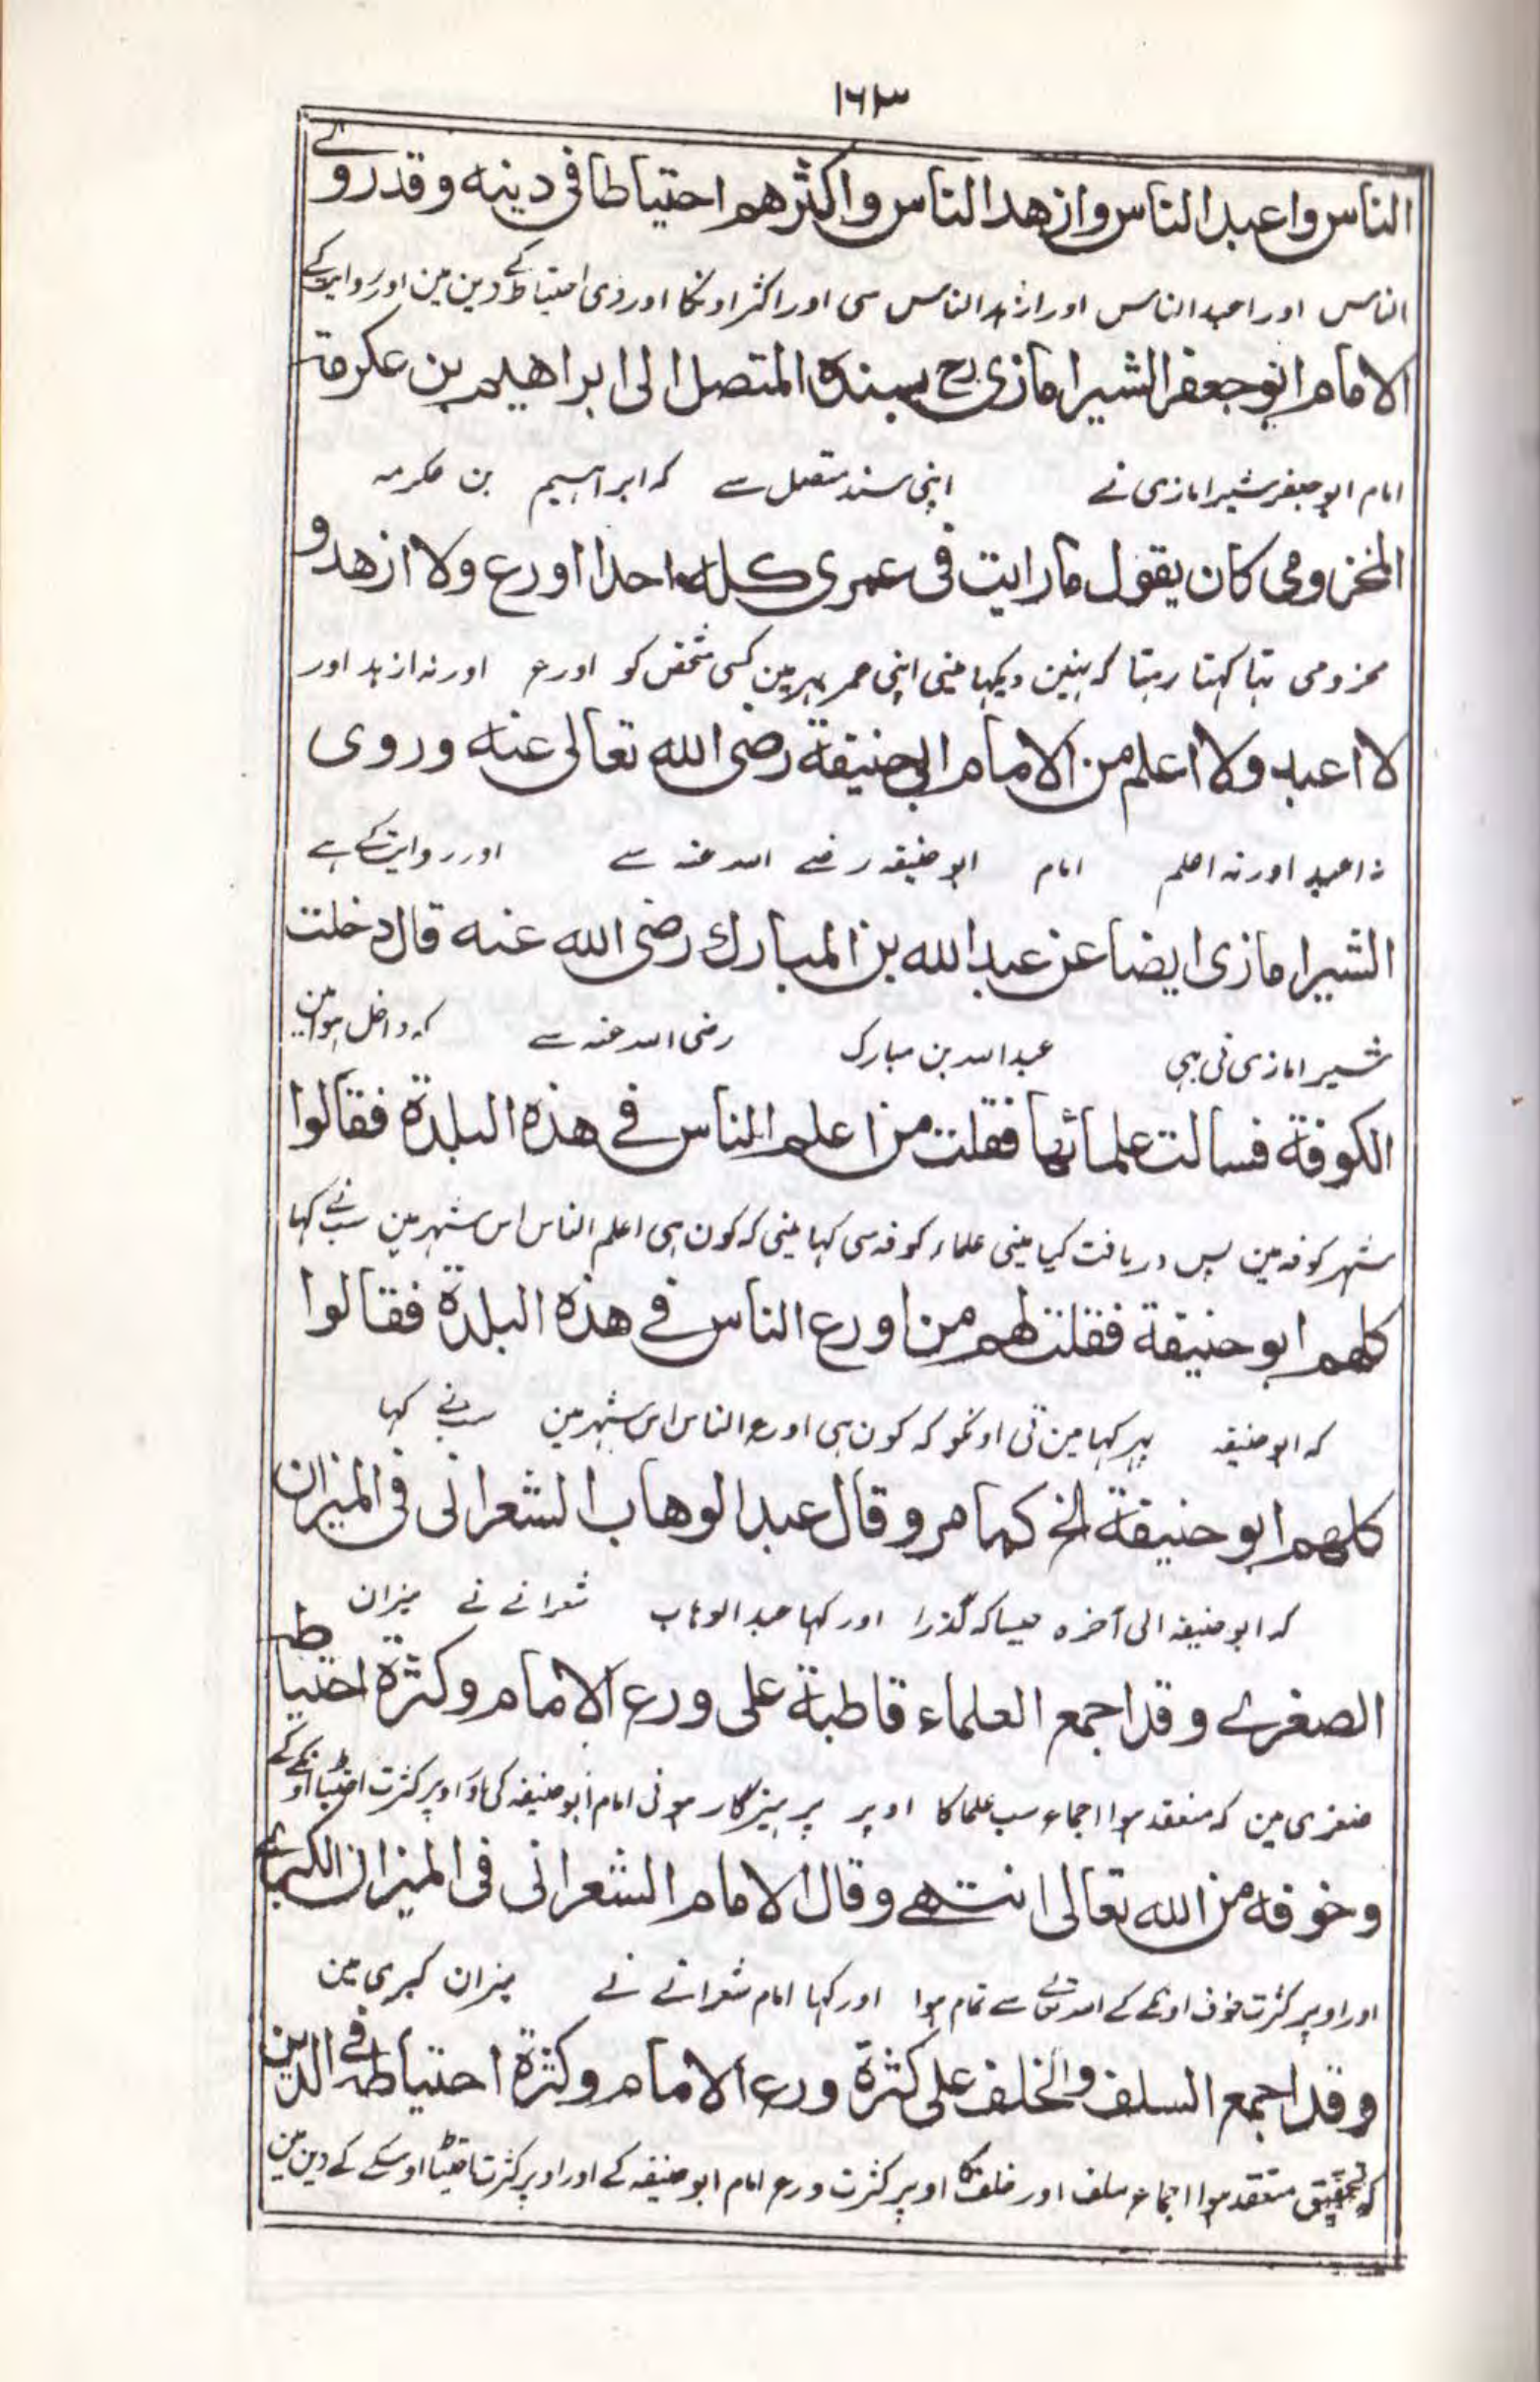 ١٦٣
الناس واعبد الناس وازهد الناس واكثرهم احتياطا في دينه وقد روى
الناس اور اعبد الناس اور ازہد الناس سی اور اکثر اونکا اور وی احتیاط کے دین مین اور روایت کے
الامام ابو جعفر الشيرامازى رح بسنده المتصل الى ابراهيم بن عكرمة
امام ابو جعفر شیرامازی نے اپنی سند متصل سے کہ ابراہیم بن عکرمہ
المخزومى كان يقول مارايت فى عمرى كله احدا اورع ولا ازهد و
مخزومی تہا کہتا رہتا کہ نہین دیکہا مینی اپنی عمر بہر مین کسی شخص کو اورع اور نہ ازہد اور
لا اعبد ولا اعلم من الامام ابى حنيفة رضى الله تعالى عنه وروى
نہ اعبد اور نہ اعلم امام ابو حنیفہ رضے اللہ عنہ سے اور روایت کے ہے
الشيرامازى ايضا عن عبد الله بن المبارك رضى الله عنه قال دخلت
شیرامازی نی بہی عبد اللہ بن مبارک رضی اللہ عنہ سے کہ داخل ہوا مین
الكوفة فسالت علمائها فقلت من اعلم الناس في هذه البلدة فقالوا
شہر کوفہ مین پس دریافت کیا مینی علماء کوفہ سی کہا مینی کہ کون ہی اعلم الناس اس شہر مین سب نے کہا
كلهم ابو حنيفة فقلت لهم من اورع الناس في هذه البلدة فقالوا
کہ ابو حنیفہ پہر کہا مین نی اونکو کہ کون ہی اورع الناس اس شہر مین سب نے کہا
كلهم ابو حنيفة الخ كما مر وقال عبد الوهاب الشعرانى فى الميزان
کہ ابو حنیفہ الی آخرہ جیسا کہ گذرا اور کہا عبد الوہاب شعرانے نے میزان
الصغرے وقد اجمع العلماء قاطبة على ورع الامام وكثرة احتياطه
صغری مین کہ منعقد ہوا اجماع سب علما کا اوپر پرہیزگار ہونی امام ابو حنیفہ کی اور اوپر کثرت احتیاط اونکے کے
وخوفه من الله تعالى انتهے وقال الامام الشعرانى فى الميزان الكبرے
اور اوپر کثرت خوف اونکے کے اللہ تعالے سے تمام ہوا اور کہا امام شعرانے نے میزان کبری مین
وقد اجمع السلف والخلف على كثرة ورع الامام وكثرة احتياطه في الدين
کہ تحقیق منعقد ہوا اجماع سلف اور خلف کا اوپر کثرت ورع امام ابو حنیفہ کے اور اوپر کثرت احتیاط اوسکے کے دین مین